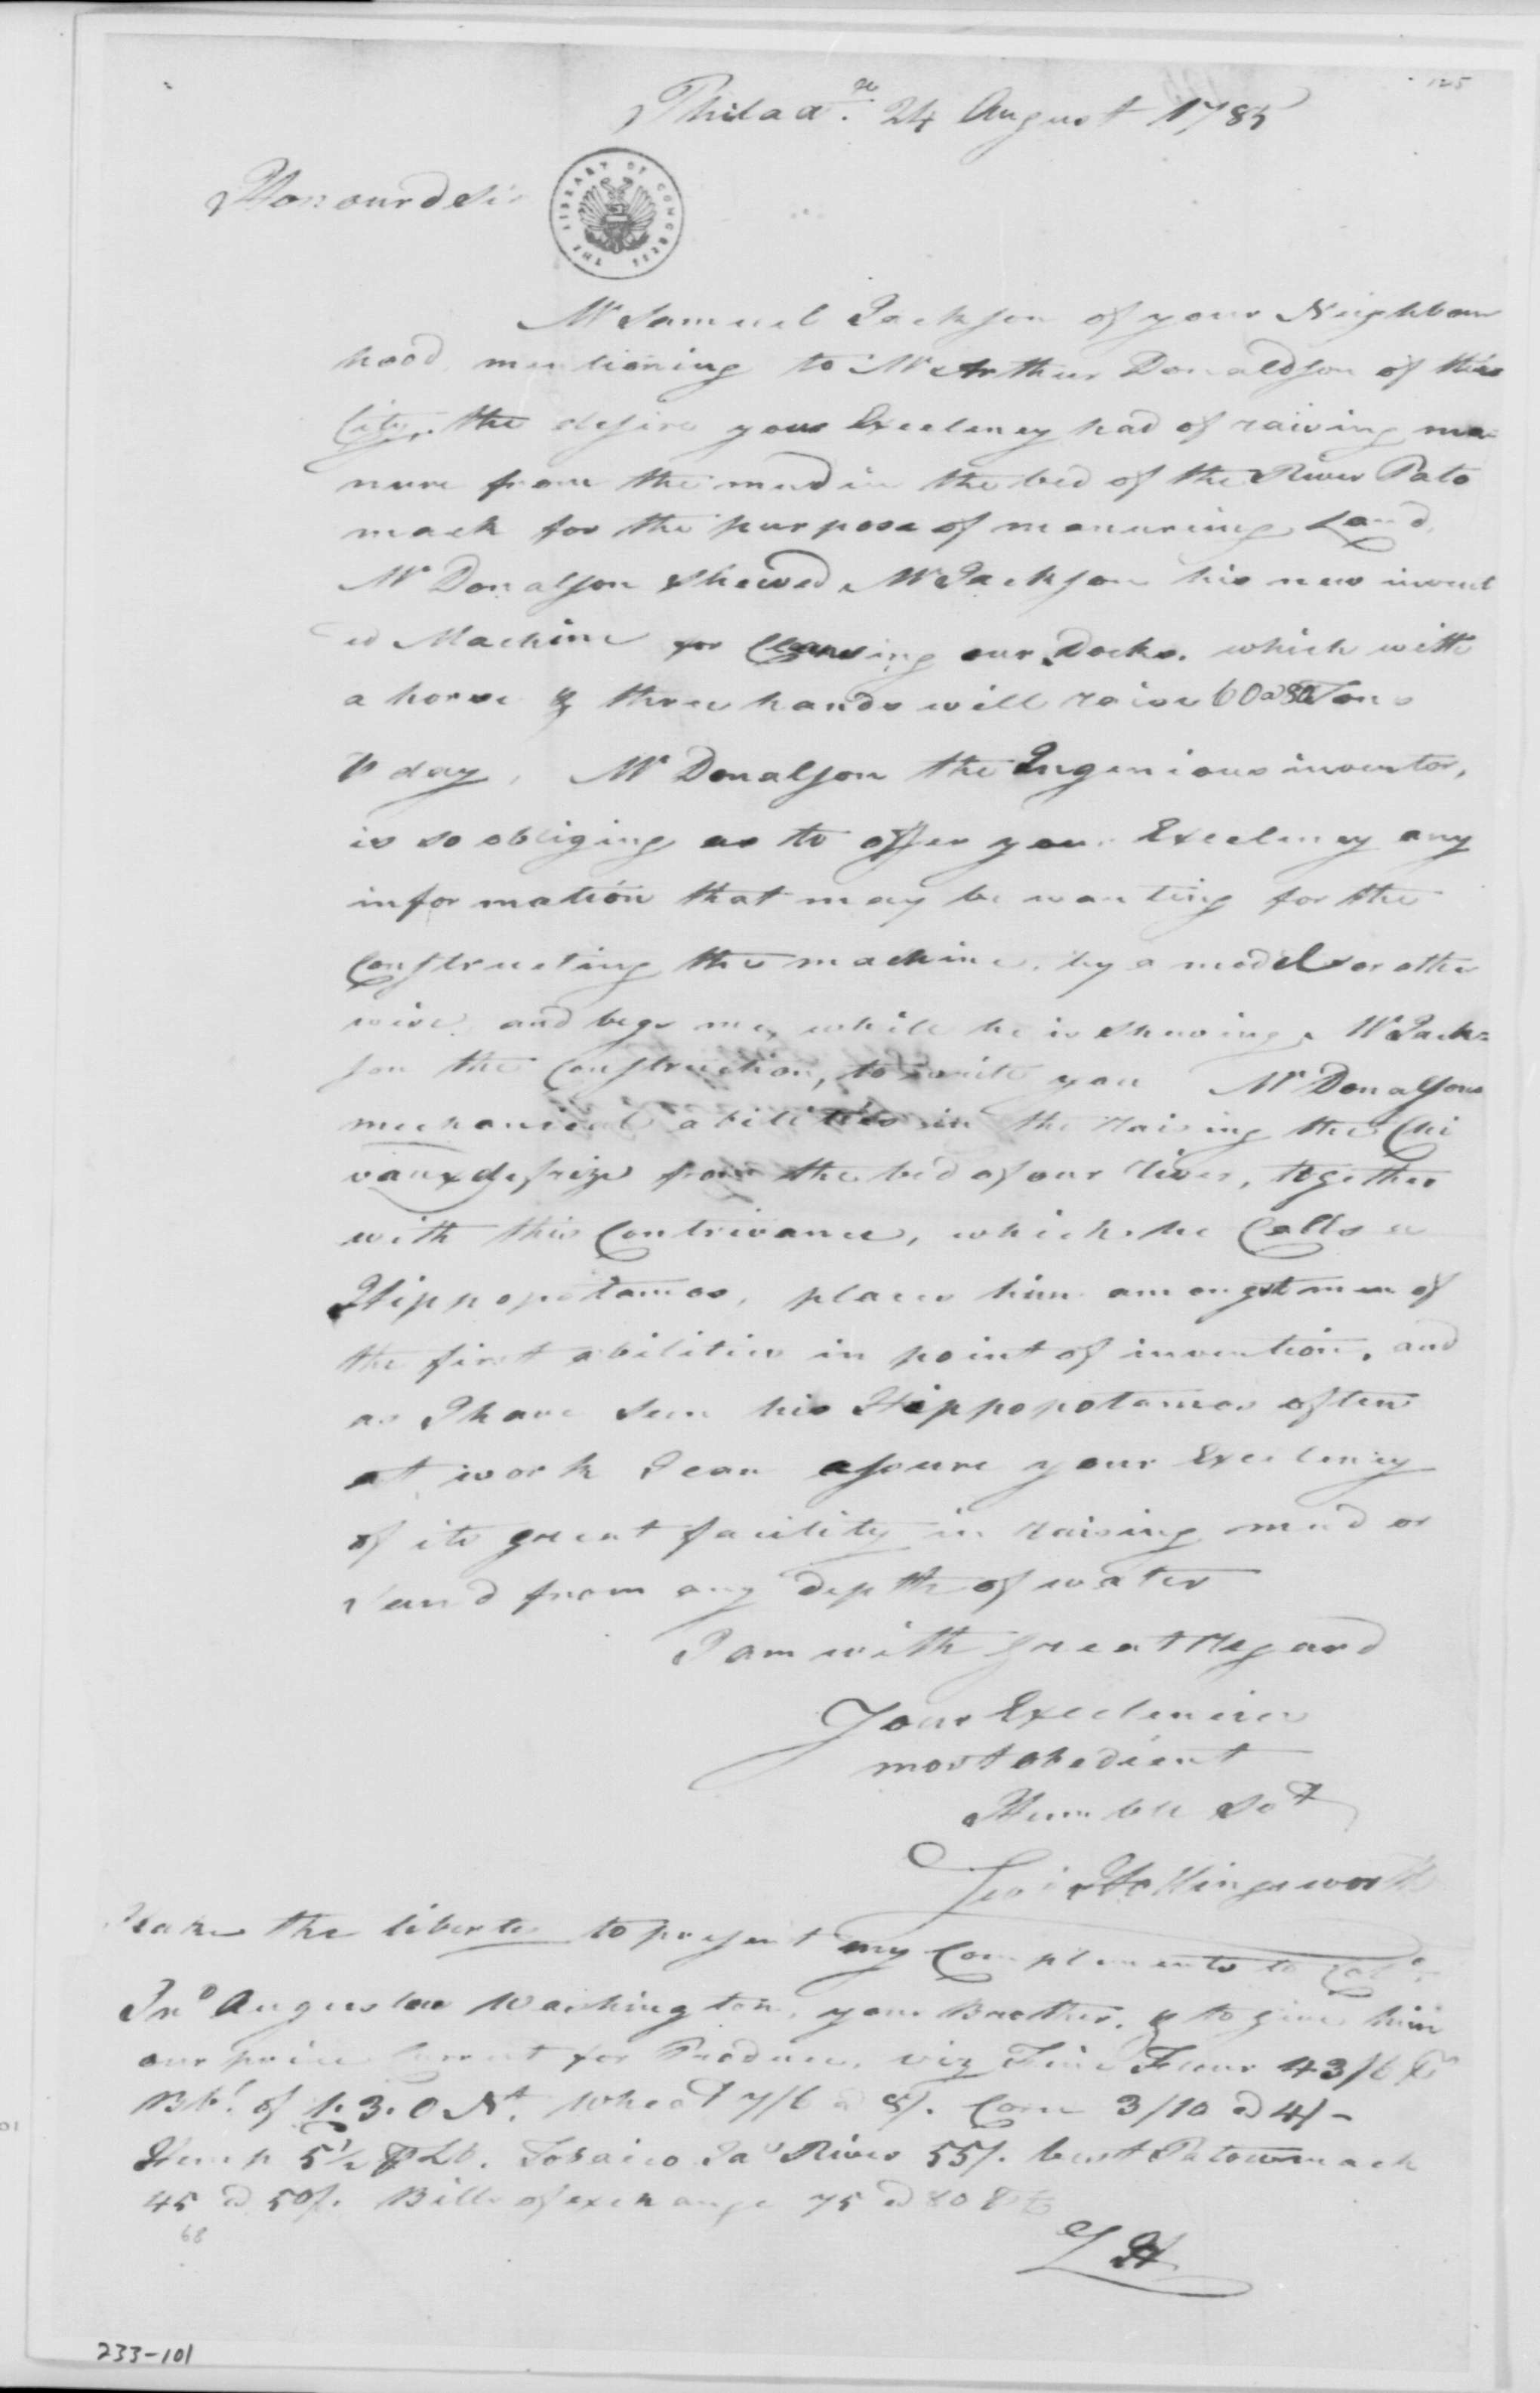 125
Philada. 24 August 1785
Honourd Sir
THE LIBRARY OF CONGRESS
Mr Samuel Jackson of your Neighbour
hood mentioning to Mr Arthur Donaldson of this
City, the desire your Excelency had of raising ma
nure from the mud in the bed of the River Poto
mack for the purpose of manuring Land,
Mr Donalson shewed Mr Jackson his new invent
ed Machine for Cleansing our Docks, which with
a horse & three hands will raise 60 a 80 Tons
⅌ day, Mr Donalson the Ingenious inventor,
is so obliging as to offer your Excelency any
information that may be wanting for the
Constructing the machine, by a model or other
wise and begs me, while he is shewing Mr Jack=
son the Construction, to write you Mr Donalsons
mechanical abilities in the raising the Chi
vaux de frize from the bed of our River, together
with this Contrivance, which he Calls a
Hippopotamos, places him amongst men of
the first abilities in point of invention, and
as I have seen his Hippopotamos often
at work I can assure your Excelency
of its great facility in raising mud or
sand from any depth of water
I am with great Regard
Your Excelencies
most obedient
Humble Set
Levi Hollingsworth
I take the liberty to present my Complements to Colo
Jno Augustus Washington, your Brother, & to give him
our price Current for Produce, viz Fine Flour 43/6 ⅌
Bbl. of 1.3.0 Nt. Wheat 7/6 a 8/. Corn 3/10 a 4/-
Hemp 5½ ⅌ Lb. Tobacco Jas River 55/. best Potowmack
45 a 50/. Bills of exchange 75 a 80 ⅌ Ct
68
L H
233-101
01